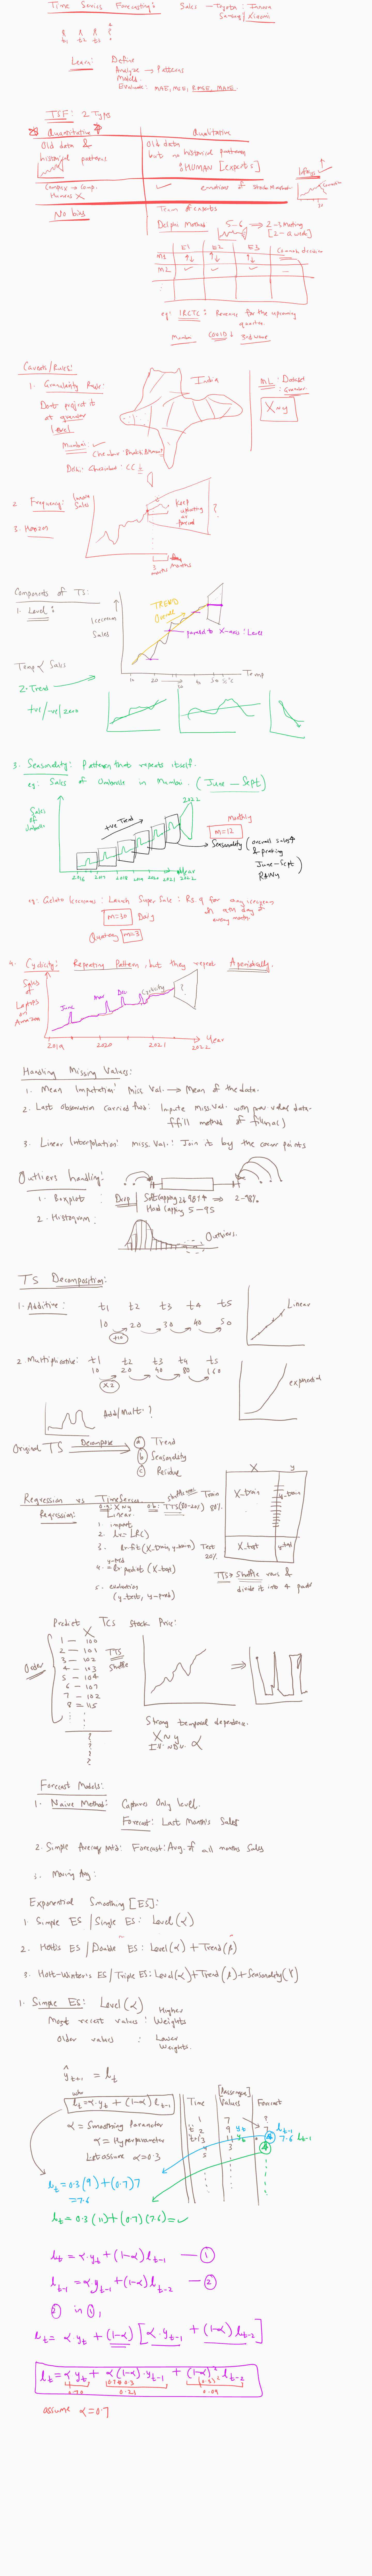 Time Series Forecasting:
Sales - Toyota : Innova
t1 t2 t3
Learn: Define
Analyze → Patterns
Model
Evaluate: MAE, MSE, RMSE, MAPE
TSF: 2 Types
Quantitative
Qualitative
Old data &
historical patterns
Old data
but no historical patterns
HUMAN [experts]
Complex → Comp.
Humans X
No bias
Team of experts
Delphi Method 5-6 → 2-3 Meeting
E1 E2 E3
m1
m2
eg: IRCTC: Revenue for the upcoming
quarter.
Mumbai Covid
Caveats/Rules:
1. Granularity Rule:
India
ML: Dataset
: Granular
X ~ y
Don't project to
at granular
level
Mumbai ✓
2. Frequency:
3. Horizon
Keep
updating
?
3 months
Components of TS:
1. Level:
Icecream
Sales
TREND
parallel to X-axis: Level
Temp
Temp ∝ Sales
2. Trend
+ve/-ve/zero
3. Seasonality: Pattern that repeats itself.
eg: Sales of Umbrella in Mumbai. (June - Sept)
Sales
of
Umbrella
+ve Trend
2022
Monthly
m=12
Seasonality (overall sales↑
& peaking
June-Sept
RAINY
2016 2017 2018 2019 2020 2021 2022
Year
m=30 Daily
Quarterly m=3
4. Cyclicity: Repeating Pattern, but they repeat Aperiodically.
Sales
of
Laptops
on
Amazon
June
Mar
Dec
Cyclicity
?
2019 2020 2021 2022
Year
Handling Missing Values:
1. Mean Imputation: Miss Val. → Mean of the data.
2. Last Observation carried fwd: Impute miss val with prev value data.
ffill method of fillna()
3. Linear Interpolation: miss. Val.: Join it by the corner points
Outliers handling:
1. Boxplot: Drop
Soft Capping 2 & 98% → 2-98%
Hard Capping 5-95
2. Histogram:
Outliers.
TS Decomposition:
1. Additive: t1 t2 t3 t4 t5
10 20 30 40 50
+10
Linear
2. Multiplicative: t1 t2 t3 t4 t5
10 20 40 80 160
x2
Add/Mult.?
Original TS Decompose
a Trend
b Seasonality
c Residue
Regression vs TimeSeries
Regression: Linear
1. import
2. lr = LR()
3. lr.fit(X-train, y-train)
4. y-pred = lr.predict(X-test)
5. evaluation
(y-test, y-pred)
Train
80%
Test
20%
X y
X-train y-train
X-test y-test
TTS → Shuffle rows &
divide it into 4 parts
Predict TCS Stock Price:
X
1 — 100
2 — 101
3 — 102
4 — 103
5 — 104
6 — 107
7 — 102
8 — 115
Order
TTS
Shuffle
Strong temporal dependence.
X ~ y
?
?
?
?
Forecast Models:
1. Naive Method: Captures Only level.
Forecast: Last Month's Sales
2. Simple Average Mtd: Forecast: Avg. of all months Sales
3. Moving Avg:
Exponential Smoothing [ES]:
1. Simple ES / Single ES: Level(α)
2. Holt's ES / Double ES: Level(α) + Trend(β)
3. Holt-Winter's ES / Triple ES: Level(α) + Trend(β) + Seasonality(γ)
1. Simple ES: Level(α)
Most recent values: Higher Weights
Older values : Lower Weights.
ŷt+1 = lt
lt = α.yt + (1-α) lt-1
α = Smoothing Parameter
α = Hyperparameter
Let assume α = 0.3
Time Values Forecast
[Passengers]
1 7 ?
2 9 yt
3 11 yt
4 3
5
7.6 lt-1
lt = 0.3(9) + (0.7)7
= 7.6
lt = 0.3(11) + (0.7)(7.6) = ✓
lt = α.yt + (1-α) lt-1 — ①
lt-1 = α.yt-1 + (1-α) lt-2 — ②
② in ①,
lt = α yt + (1-α) [α.yt-1 + (1-α) lt-2]
lt = α yt + α(1-α).yt-1 + (1-α)² lt-2
0.70 0.21 0.09
assume α = 0.7